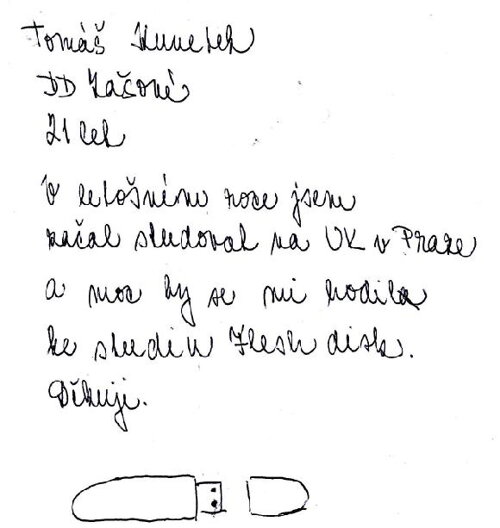 Tomáš Kunetek
DD Kačově
21 let
V letošním roce jsem
začal studovat na UK v Praze
a moc by se mi hodila
ke studiu Flesh disk.
Děkuji.